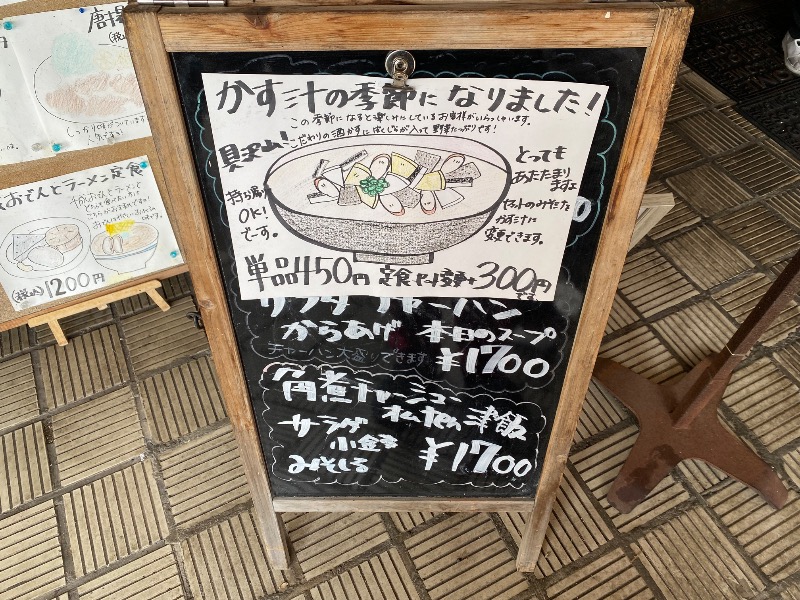 かす汁の季節になりました！
この季節になると楽しみにしているお客様がいらっしゃいます。
こだわりの酒かすに 入って 野菜たっぷりです！
具沢山！
持ち帰り
OK！
でーす。
とっても
あたたまり
ますよ
セットのみそ汁を
かす汁に
変更できます。
単品450円 定食セット変更+300円
です
チャーハン
からあげ 本日のスープ
チャーハン大盛りできます
¥1700
角煮チャーシュー
天津飯
サラダ
小金本
みそしる ¥1700
唐揚
(税込)
しっかり味がついた
おでんとラーメン定食
(税込) 1200円